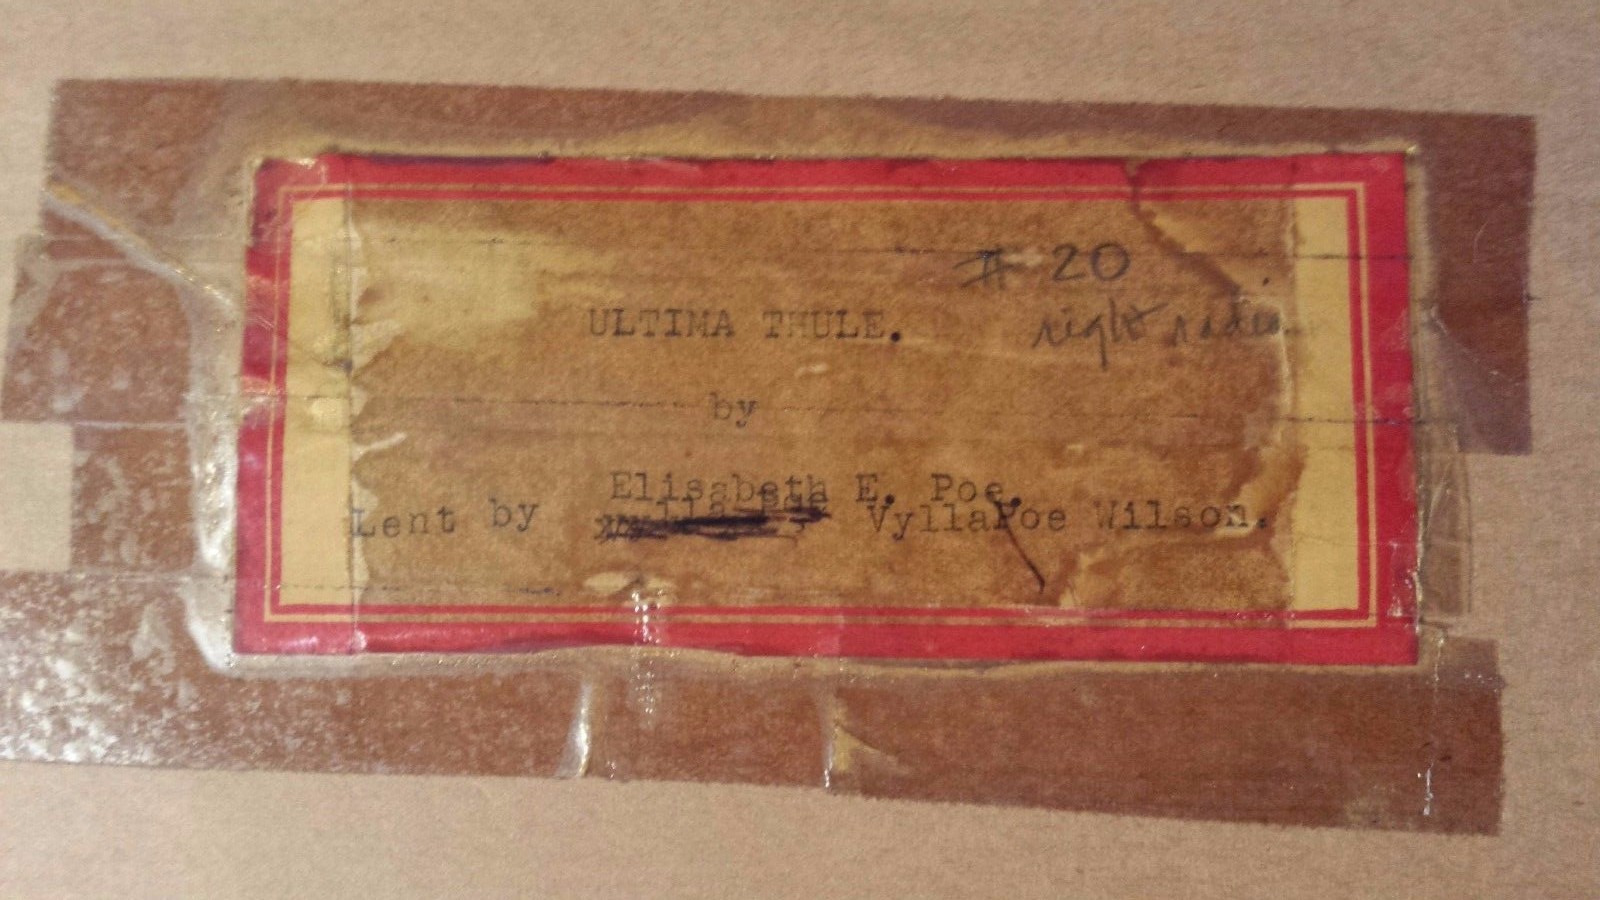 # 20
ULTIMA THULE.
right
by
Elisabeth E. Poe.
Lent by VyllaPoe Wilson.